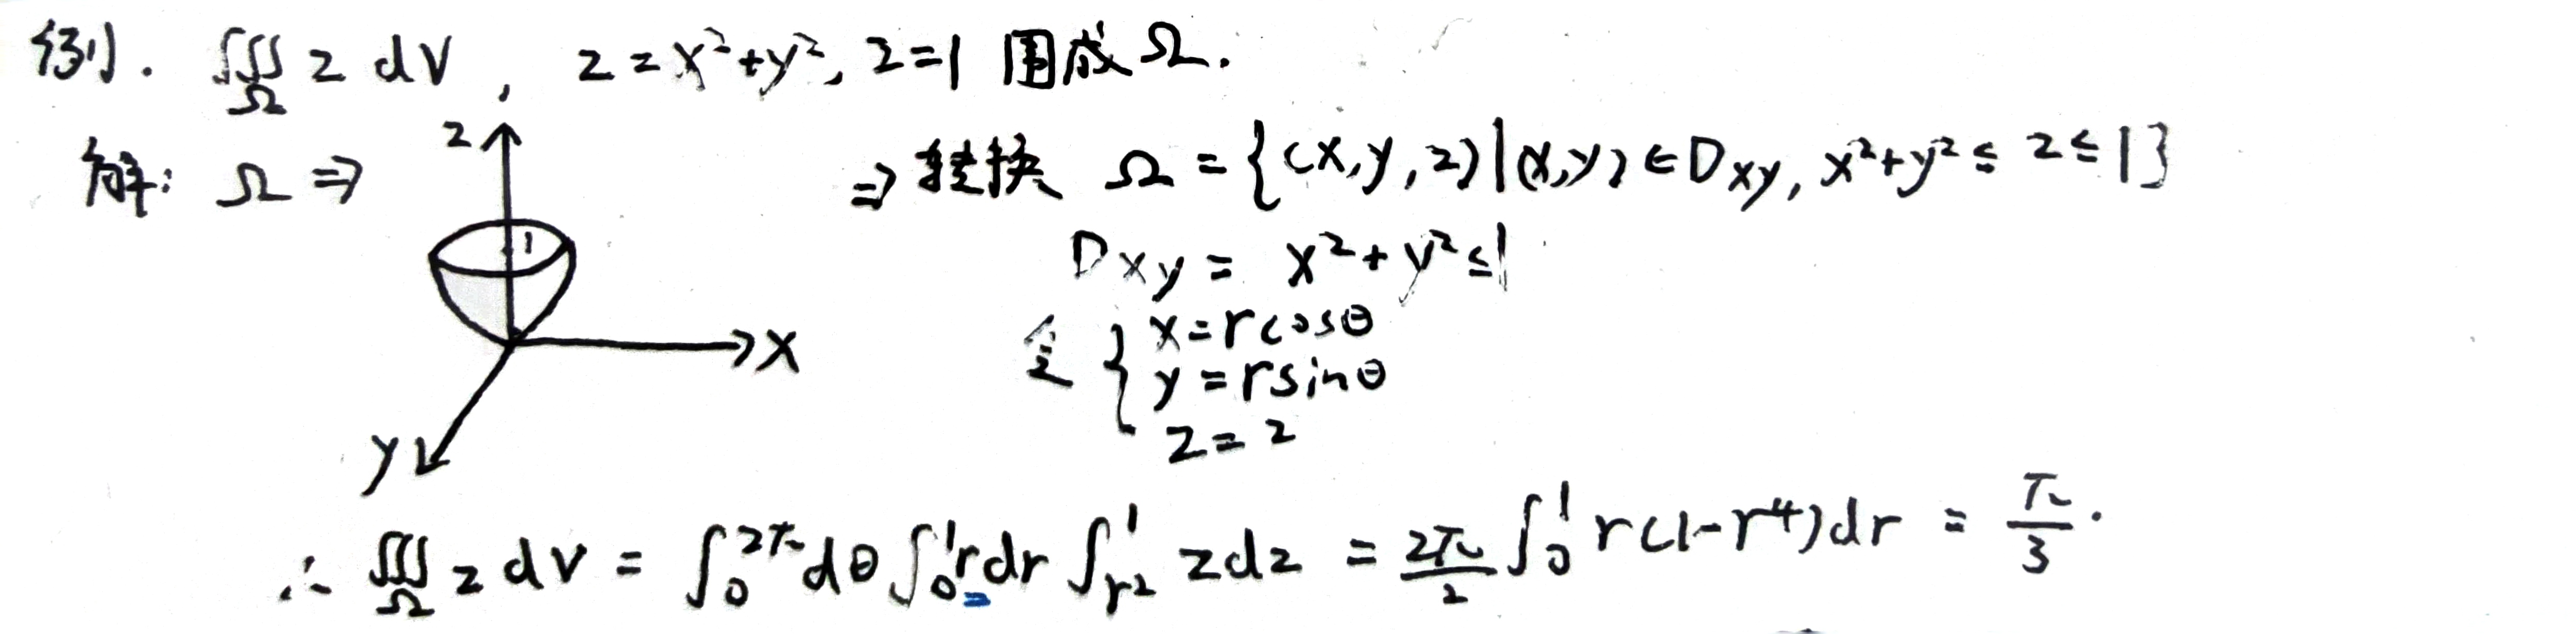 例. ∭_Ω z dV, z = x²+y², z=1 围成 Ω.
解: Ω ⇒
z
1
x
y
⇒ 转换 Ω = {(x,y,z)|(x,y)∈Dxy, x²+y² ≤ z ≤ 1}
Dxy = x²+y² ≤ 1
令 { x=rcosθ
y=rsinθ
z=z
∴ ∭_Ω z dV = ∫₀^{2π} dθ ∫₀¹ r dr ∫_{r²}^1 z dz = 2π/2 ∫₀¹ r(1-r⁴)dr = π/3.